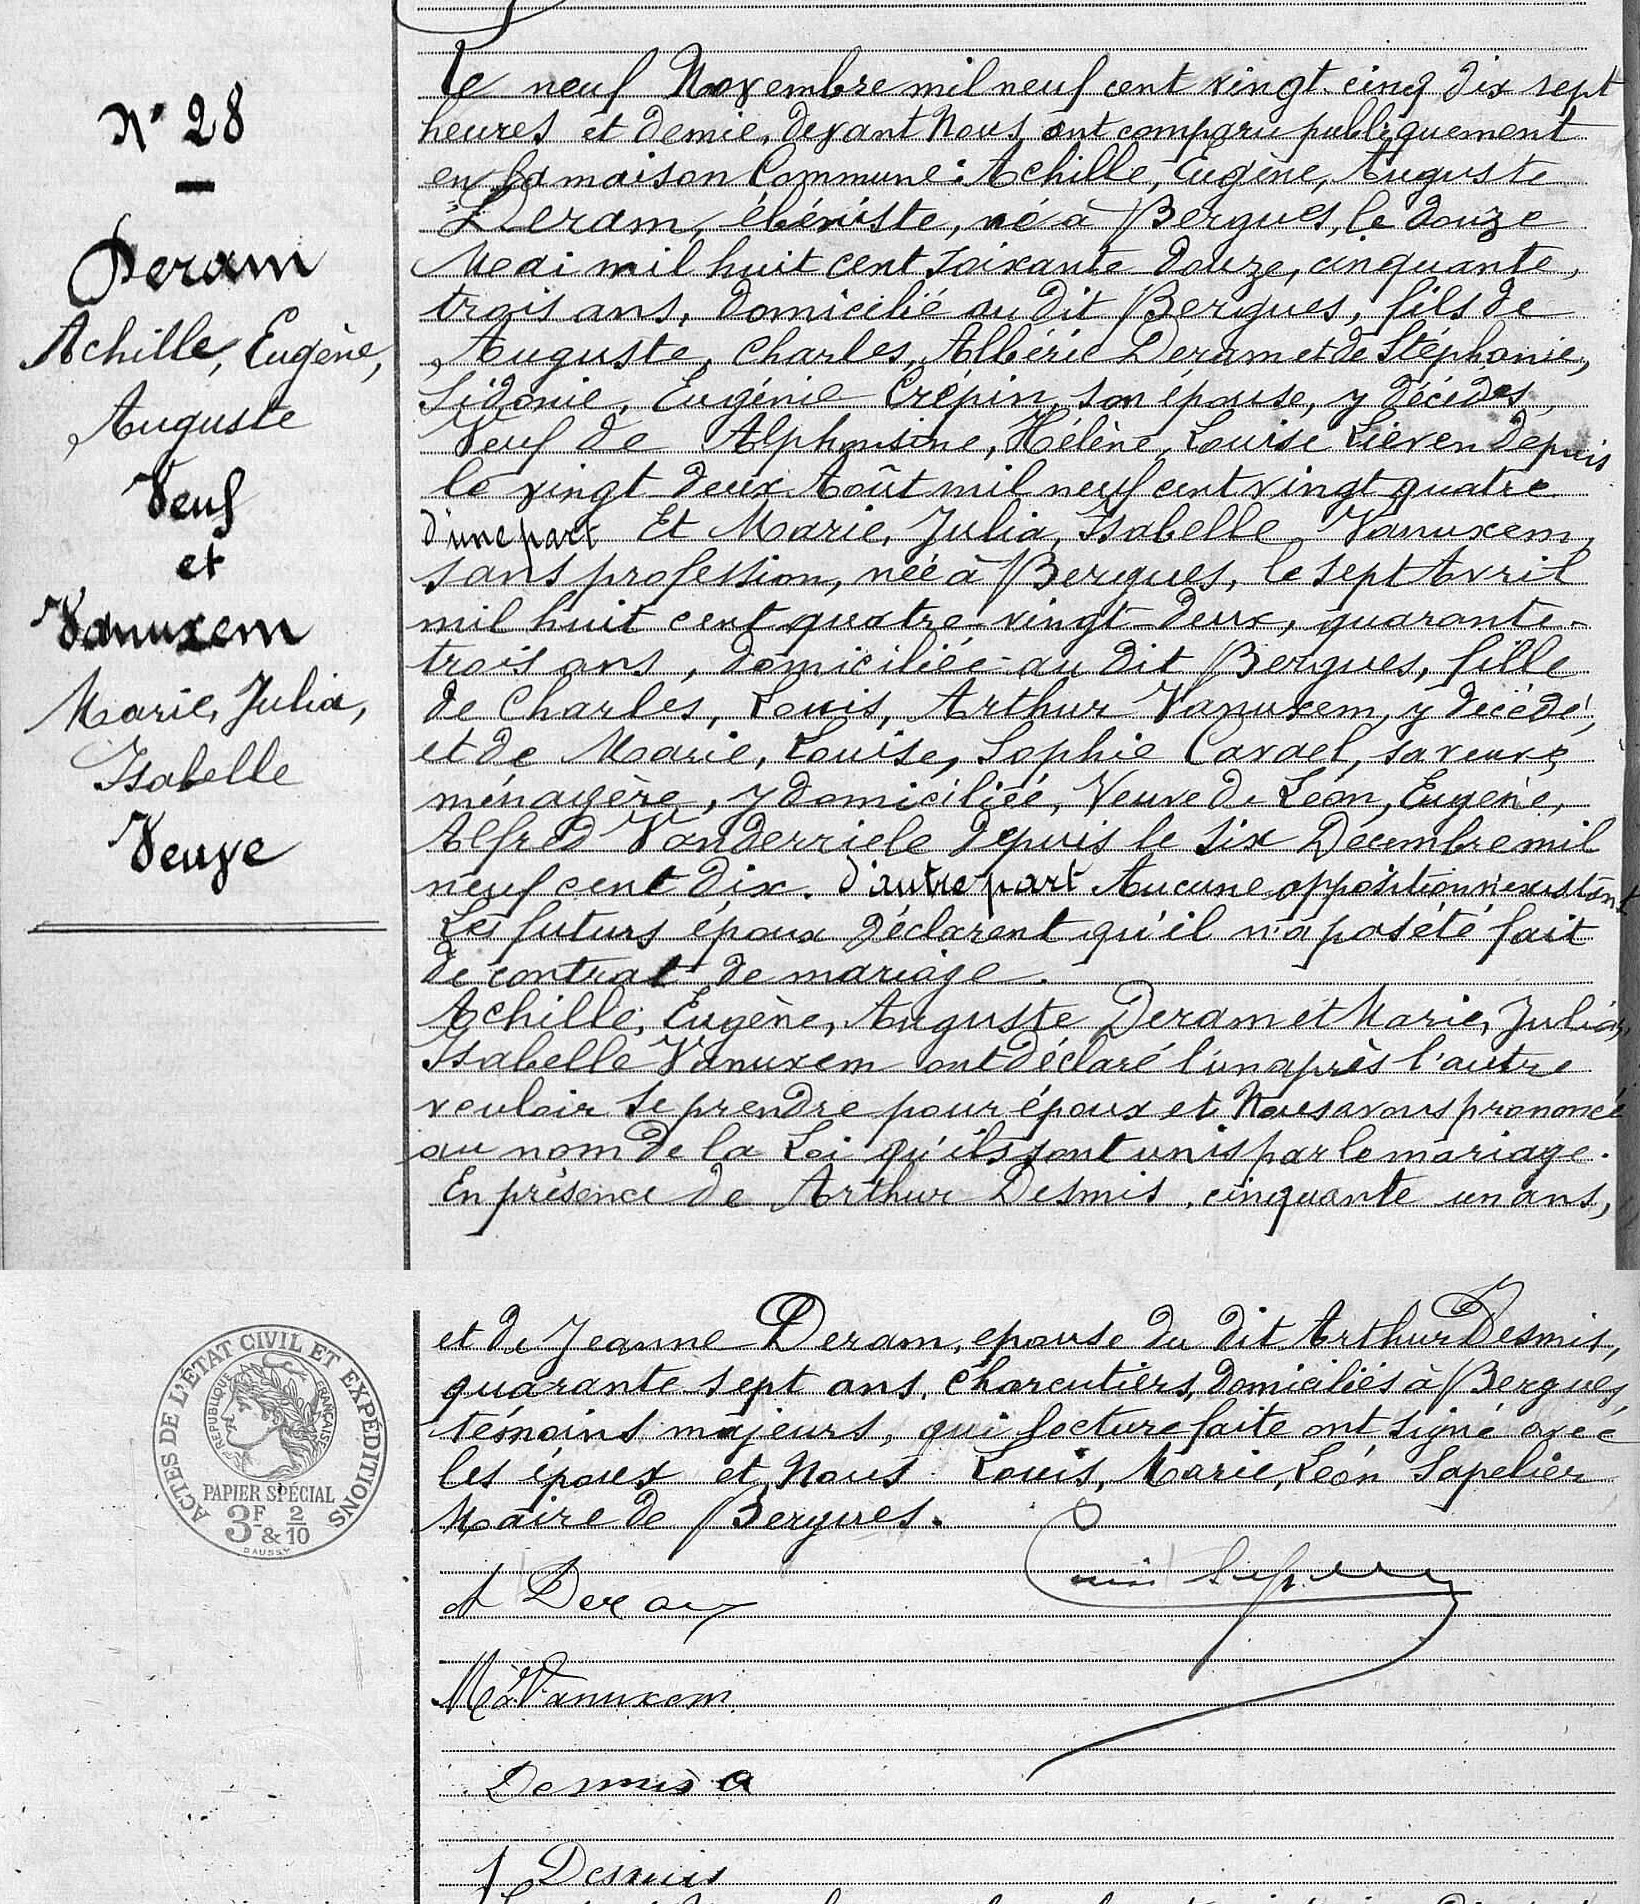 N° 28
Deram
Achille, Eugène,
Auguste
Veuf
et
Vanuxem
Marie, Julia,
Isabelle
Veuve
Le neuf Novembre mil neuf cent vingt-cinq dix sept
heures et demie, devant Nous ont comparu publiquement
en la maison Commune : Achille, Eugène, Auguste
Deram, ébéniste, né à Bergues, le douze
Mai mil huit cent soixante douze, cinquante,
trois ans, domicilié au dit Bergues, fils de
Auguste, Charles, Albéric Deram et de Stéphanie,
Sidonie, Eugénie Crépin, son épouse, y décédés,
Veuf de Alphonsine, Hélène, Louise Lieven depuis
le vingt deux Août mil neuf cent vingt quatre
d'une part Et Marie, Julia, Isabelle Vanuxem,
sans profession, née à Bergues, le sept Avril
mil huit cent quatre-vingt-deux, quarante-
trois ans, domiciliée au dit Bergues, fille
de Charles, Louis, Arthur Vanuxem, y décédé,
et de Marie, Louise, Sophie Cavael, sa veuve,
ménagère, y domiciliée, Veuve de Léon, Eugène,
Alfred Vanderriele depuis le six Décembre mil
neuf cent dix. d'autre part Aucune opposition n'existant
Les futurs époux déclarent qu'il n'a pas été fait
de contrat de mariage.
Achille, Eugène, Auguste Deram et Marie, Julia,
Isabelle Vanuxem ont déclaré l'un après l'autre
vouloir se prendre pour époux et Nous avons prononcé
au nom de la Loi qu'ils sont unis par le mariage.
En présence de Arthur Desmis, cinquante un ans,
et de Jeanne Deram, epouse du dit Arthur Desmis,
quarante-sept ans, charcutiers, domiciliés à Bergues,
témoins majeurs, qui lecture faite ont signé avec
les époux et Nous. Louis, Marie, Léon Sapelier
Maire de Bergues.
ACTES DE L'ÉTAT CIVIL ET EXPÉDITIONS
RÉPUBLIQUE FRANÇAISE
PAPIER SPÉCIAL
3F & 2/10
DAUSSY
A Deram
Louis Sapelier
Mia Vanuxem
Desmis A
J Desmis